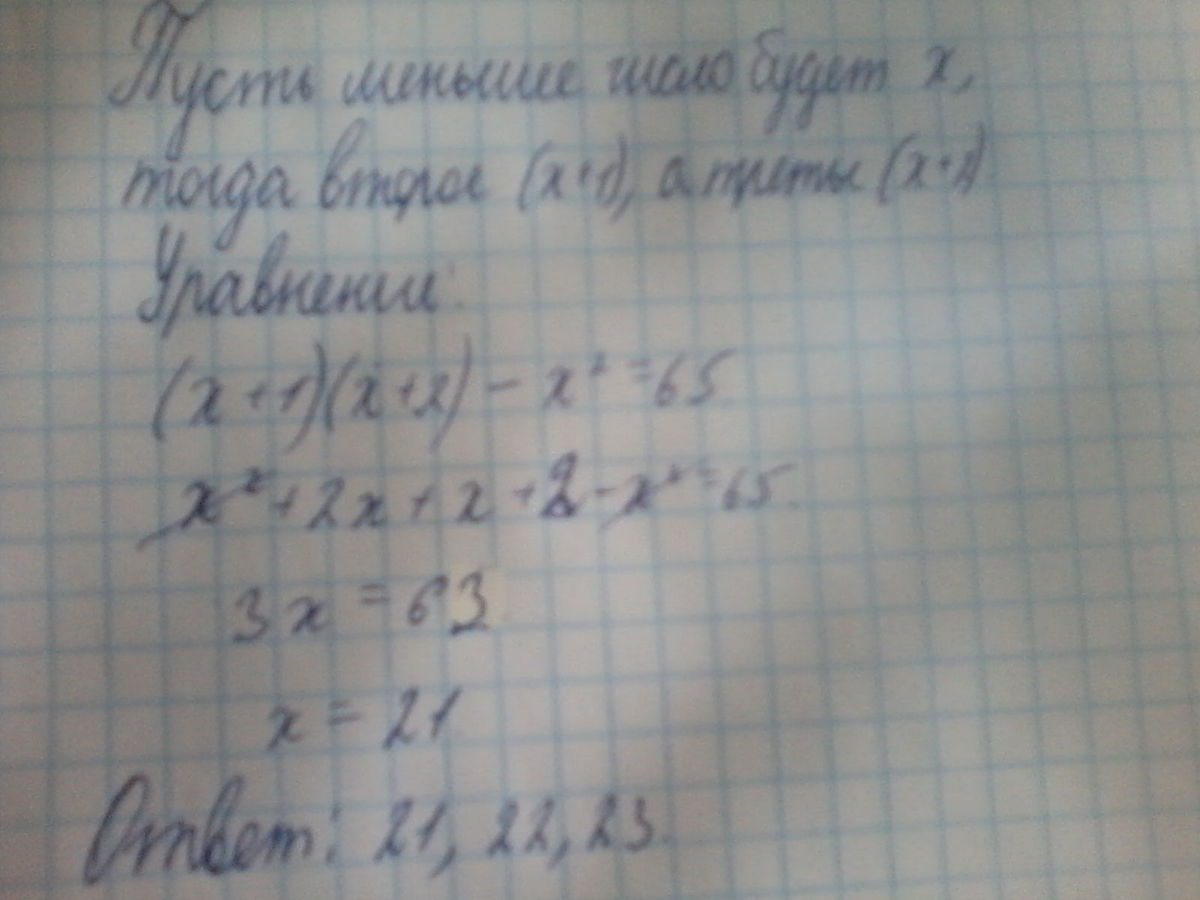 Пусть меньшее число будет x,
тогда второе (x+1), а третье (x+2)
Уравнение:
(x+1)(x+2) - x² = 65
x² + 2x + x + 2 - x² = 65.
3x = 63
x = 21
Ответ: 21, 22, 23.